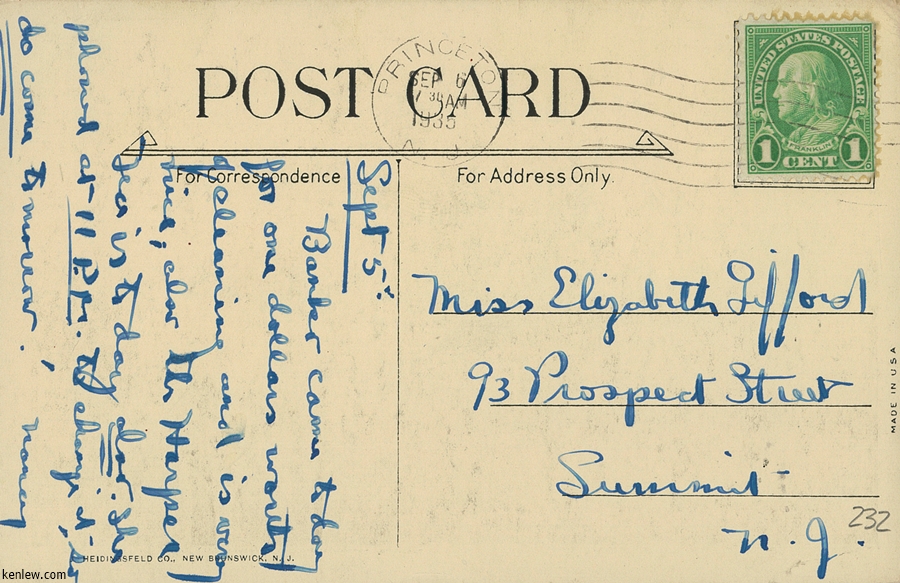 POST CARD
PRINCETON
SEP 6
7 30 AM
1935
N. J.
UNITED STATES POSTAGE
FRANKLIN
1 CENT 1
For Correspondence
For Address Only.
Sept 5.
came to day
for one dollars worth
of cleaning and is very
nice, also the Harper
is to day also. She
phoned at 11 P.M. to change it,
do come to morrow. Nancy
Miss Elizabeth Gifford
93 Prospect Street
Summit
N. J.
232
MADE IN USA
HEIDINGSFELD CO., NEW BRUNSWICK, N. J.
kenlew.com